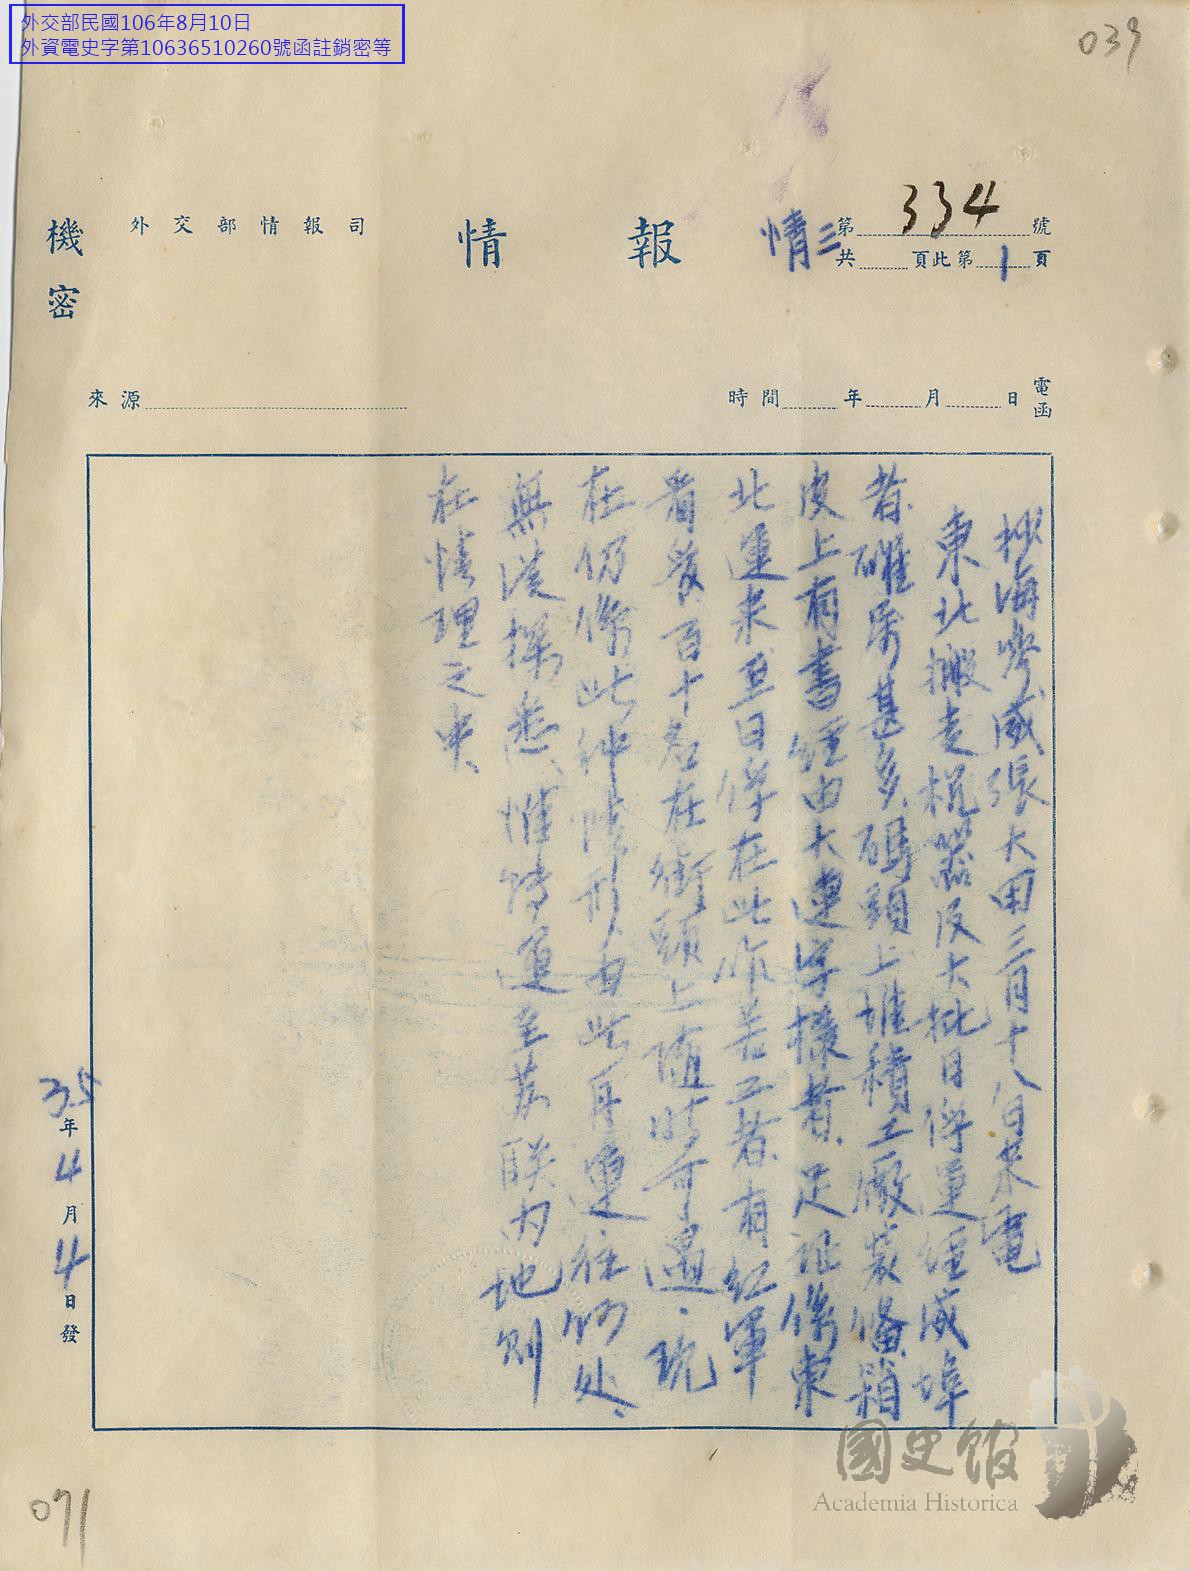 外交部民國106年8月10日
外資電史字第10636510260號函註銷密等
039
機密
外交部情報司
情報
情三
第334號
共 頁此第1頁
來源
時間 年 月 日
電函
抄海參威張大田三月十八日來電
東北搬走机器及大批日俘運經威埠
者確屬甚多碼頭上堆積工廠裝備箱
皮上有書經由大連字樣者、足証係東
北運來至日俘在此作苦工者有紅軍
看發、百十名在街頭上隨時可遇、現
在仍係此种情形由此再運往何处、
無從探悉、惟轉運至苏联内地則
在情理之中、
35年4月4日發
071
國史館
Academia Historica